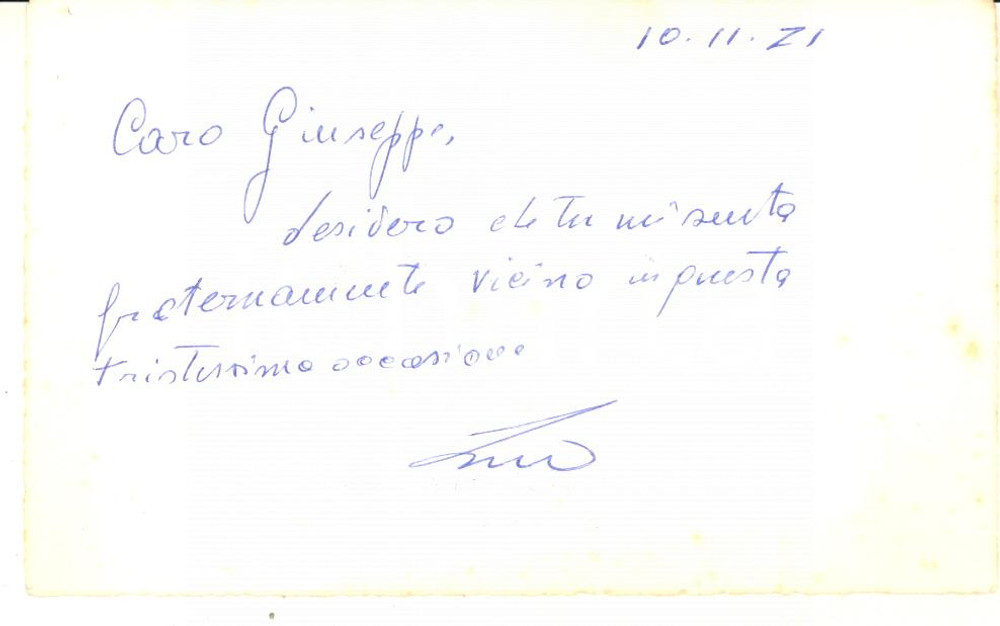 10.11.71
Caro Giuseppe,
desidero che tu mi senta
fraternamente vicino in questa
tristissima occasione